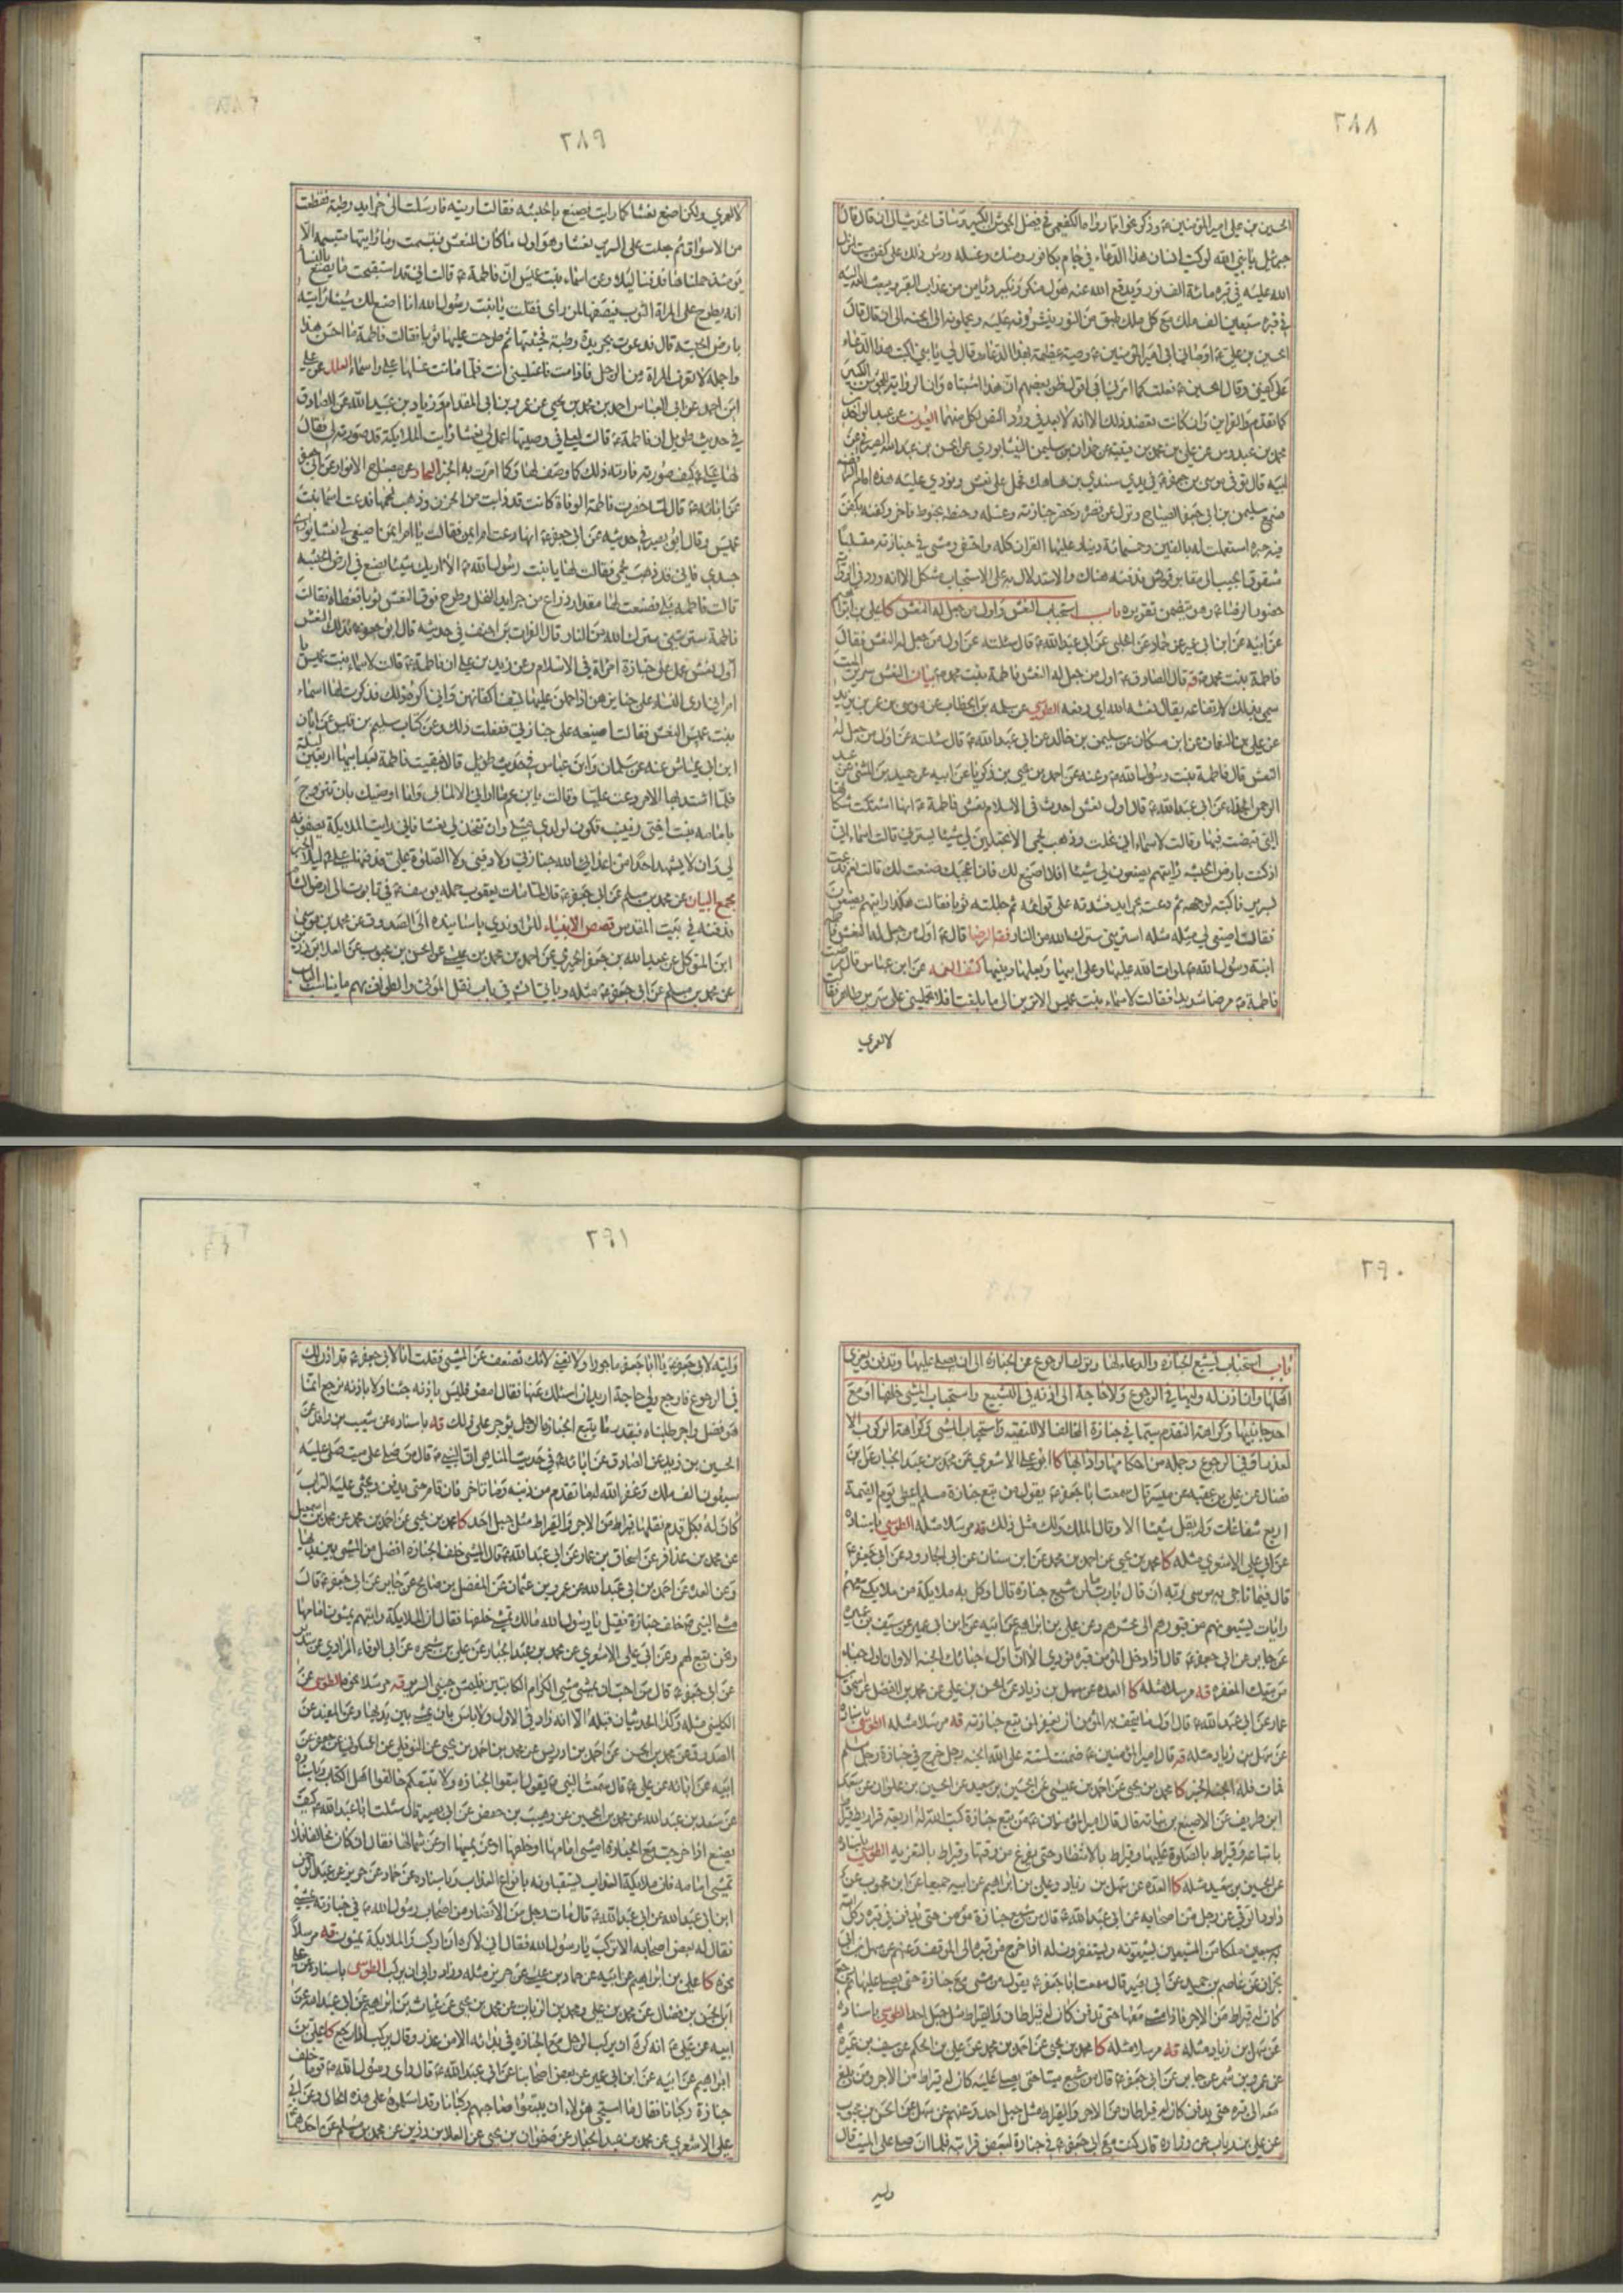 ٢٨٨
الحسين بن علي امير المؤمنين ع وذكر نحوا مما رواه الكفعمي في فضل الجوشن الكبير وساق الحديث الى ان قال قال
جبرئيل يا نبي الله لو كتب انسان هذا الدعاء في جام بكافور ومسك وغسله ورش ذلك على كفن ميت انزل
الله عليه في قبره مائة الف نور ويدفع الله عنه هول منكر ونكير ويأمن من عذاب القبر ويبعث الله اليه
في قبره سبعين الف ملك مع كل ملك طبق من النور ينثرونه عليه ويحملونه الى الجنة الى ان قال قال
الحسين بن علي ع اوصاني ابي امير المؤمنين ع وصية عظيمة بهذا الدعاء وقال لي يا بني اكتب هذا الدعاء
على كفني وقال الحسين ع فعلت كما امرني ابي اقول ظن بعضهم ان هذا اشتباه وان الرواية للجوشن الكبير
كما تقدم والقرائن وان كانت تعضد ذلك الا انه لا بعد في ورود النص لكل منهما العيون عن عبد الواحد
محمد بن عبدوس عن علي بن محمد بن قتيبة عن حمدان بن سليمن النيسابوري عن الحسن بن عبد الله الصيرفي عن
ابيه قال توفي موسى بن جعفر ع في يدي سندي بن شاهك فحمل على نعش ونودي عليه هذه امام الرافضة
سليمن بن ابي جعفر الصياح ونزل عن قصره وحضر جنازته وغسله وحنطه بحنوط فاخر وكفنه بكفن
فيه حبرة استعملت له بالفين وخمسمائة دينار عليها القران كله واحتفى ومشى في جنازته متسلبا
مشقوق الجيب الى مقابر قريش فدفنه هناك والاستدلال به على الاستحباب مشكل الا انه ورد في
حضور الرضا ع وهو يتضمن تقريره باب استحباب النعش واول من جعل له النعش كا علي بن ابراهيم
عن ابيه عن ابن ابي عمير عن حماد عن الحلبي عن ابي عبد الله ع قال سئلته عن اول من جعل له النعش فقال
فاطمة بنت محمد ص يه قال الصادق ع اول من جعل له النعش فاطمة بنت محمد ص بيان النعش سرير الميت
سمي بذلك لارتفاعه يقال نعشه الله اي رفعه الطوسي عن سلمة بن الخطاب عن موسى بن عمر بن يزيد
عن علي بن النعمان عن ابن مسكان عن سليمن بن خالد عن ابي عبد الله ع قال سئلته عن اول من جعل له
النعش قال فاطمة بنت رسول الله ص وعنه عن احمد بن يحيى بن زكريا عن ابيه عن حميد بن المثنى عن عبد
الرحمن الحذاء عن ابي عبد الله ع قال اول نعش احدث في الاسلام نعش فاطمة ع انها اشتكت شكاتها
التي قبضت فيها وقالت لاسماء اني نحلت وذهب لحمي الا تجعلين لي شيئا يسترني قالت اسماء اني
اذ كنت بارض الحبشة رايتهم يصنعون لي شيئا افلا اصنع لك فان اعجبك صنعت لك قالت نعم فدعت
بسرير فاكبته لوجهه ثم دعت بجرايد فشدته على قوائمه ثم جللته ثوبا فقالت هكذا رايتهم يصنعون
فقالت اصنعي لي مثله استريني سترك الله من النار فقه الرضا قال ع اول من جعل له النعش فاطمة
ابنة رسول الله صلوات الله عليها وعلى ابيها وبعلها وبنيها كشف الغمة عن ابن عباس قال مرضت
فاطمة ع مرضا شديدا فقالت لاسماء بنت عميس الا ترين الى ما بلغت افلا تحمليني على سرير ظاهر فقالت
لا لعمري
٢٨٩
لا لعمري ولكن اصنع نعشا كما رايت يصنع بالحبشة فقالت ارينيه فارسلت الى جرايد رطبة فقطعت
من الاسواق ثم جعلت على السرير نعشا وهو اول ما كان النعش فتبسمت وما رايتها متبسمة الا
يومئذ ثم حملناها فدفناها ليلا وعن اسماء بنت عميس ان فاطمة ع قالت اني قد استقبحت ما يصنع بالنساء
انه يطرح على المراة الثوب فيصفها لمن راى فقلت يا بنت رسول الله انا اصنع لك شيئا رايته
بارض الحبشة قال فدعوت بجريدة رطبة فحنتها ثم طرحت عليها ثوبا فقالت فاطمة ما احسن هذا
واجمله لا تعرف المراة من الرجل فاذا مت فاغسليني انت فلما ماتت غسلها علي واسماء العلل عن علي
ابن احمد عن ابي العباس احمد بن محمد بن يحيى عن عمرو بن ابي المقدام وزياد بن عبيد الله عن الصادق
في حديث طويل ان فاطمة ع قالت لعلي في وصيتها اعمل لي نعشا رايت الملائكة قد صورته لي فقال
لها علي ع كيف صورته فارته ذلك كما وصف لها وكما امرت به الخبر البحار عن مصباح الانوار عن ابي جعفر
عن ابائه ع قال لما حضرت فاطمة الوفاة كانت قد ذابت من الحزن وذهب لحمها فدعت اسماء بنت
عميس وقال ابو بصير في حديثه عن ابي جعفر ع انها دعت ام ايمن فقالت يا ام ايمن اصنعي لي نعشا يواري
جسدي فاني قد ذهب لحمي فقالت لها يا بنت رسول الله ص الا اريك شيئا يصنع في ارض الحبشة
قالت فاطمة بلى فصنعت لها مقدار ذراع من جرايد النخل وطرح فوق النعش ثوبا فغطاه فقالت
فاطمة سترتيني سترك الله من النار قال الفرات بن احنف في حديثه قال ابو جعفر ع فذلك النعش
اول نعش عمل على جنازة امراة في الاسلام وعن زيد بن علي ان فاطمة ع قالت لاسماء بنت عميس يا
ام اني ارى النساء على جنايزهن اذا حملن عليها تشف اكفانهن واني اكره ذلك فذكرت لها اسماء
بنت عميس النعش فقالت اصنعيه على جنازتي ففعلت ذلك وعن كتاب سليم بن قيس عن ابان
ابن ابي عياش عنه عن سلمان وابن عباس في حديث طويل قالا فبقيت فاطمة بعد ابيها اربعين ليلة
فلما اشتد بها الامر دعت عليا وقالت يا ابن عم ما اراني الا لما بي وانا اوصيك بان تتزوج
بامامة بنت اختي زينب تكون لولدي مثلي وان تتخذ لي نعشا فاني رايت الملائكة يصفونه
لي وان لا يشهد احد من اعداء الله جنازتي ولا دفني ولا الصلوة علي فدفنها علي ليلا الخبر
مجمع البيان عن محمد بن مسلم عن ابي جعفر ع قال لما مات يعقوب حمله يوسف ع في تابوت الى ارض الشام
فدفنه في بيت المقدس قصص الانبياء للراوندي باسانيده الى الصدوق عن محمد بن موسى
ابن المتوكل عن عبد الله بن جعفر الحميري عن احمد بن محمد بن عيسى عن الحسن بن محبوب عن العلا بن رزين
عن محمد بن مسلم عن ابي جعفر ع مثله وياتي ان شاء في باب نقل الموتى والطواف بهم ما يناسب الباب
٢٩٠
باب استحباب تشييع الجنازة والدعاء لها وترك الرجوع عن الجنازة الى ان يصلى عليها وتدفن ويعزى
اهلها وان اذن له وليها في الرجوع ولا حاجة الى اذنه في التشييع واستحباب المشي خلفها او مع
احد جانبيها وكراهة التقدم سيما في جنازة المخالف الا للتقية واستحباب المشي وكراهة الركوب الا
لعذر او في الرجوع وجملة من احكامها وادابها كا ابو علي الاشعري عن محمد بن عبد الجبار عن ابن
فضال عن علي بن عقبة عن ميسر قال سمعت ابا جعفر ع يقول من تبع جنازة مسلم اعطي يوم القيمة
اربع شفاعات ولم يقل شيئا الا وقال الملك ولك مثل ذلك يه مرسلا مثله الطوسي باسناده
عن ابي علي الاشعري مثله كا محمد بن يحيى عن احمد بن محمد عن ابن سنان عن ابي الجارود عن ابي جعفر ع
قال فيما ناجى به موسى ربه ان قال يا رب ما لمن شيع جنازة قال اوكل به ملائكة من ملائكتي معهم
رايات يشيعونهم من قبورهم الى محشرهم وعن علي بن ابراهيم عن ابيه عن ابن ابي عمير عن سيف بن عميرة
عن جابر عن ابي جعفر ع قال اذا ادخل المؤمن قبره نودي الا ان اول حبائك الجنة الا وان اول حباء
من تبعك المغفرة يه مرسلا مثله كا العدة عن سهل بن زياد عن الحسن بن علي عن محمد بن الفضيل عن اسحق
عمار عن ابي عبد الله ع قال اول ما يتحف به المؤمن ان يغفر لمن تبع جنازته يه مرسلا مثله الطوسي باسناده
عن سهل بن زياد مثله يه قال امير المؤمنين ع ضمنت لستة على الله الجنة رجل خرج في جنازة رجل مسلم
فمات فله الجنة الخبر كا محمد بن يحيى عن احمد بن محمد بن عيسى عن الحسين بن سعيد عن الحسين بن علوان عن سعد
ابن طريف عن الاصبغ بن نباتة قال قال امير المؤمنين ع من تبع جنازة كتب الله له اربعة قراريط قيراط
باتباعه وقيراط بالصلوة عليها وقيراط بالانتظار حتى يفرغ من دفنها وقيراط بالتعزية الطوسي باسناده
عن الحسين بن سعيد مثله كا العدة عن سهل بن زياد وعلي بن ابراهيم عن ابيه جميعا عن ابن محبوب عن
داود الرقي عن رجل من اصحابه عن ابي عبد الله ع قال من شيع جنازة مؤمن حتى يدفن في قبره وكل الله
به سبعين ملكا من المشيعين يشيعونه ويستغفرون له اذا خرج من قبره الى الموقف وعنهم عن سهل عن ابن ابي
نجران عن عاصم بن حميد عن ابي بصير قال سمعت ابا جعفر ع يقول من مشى مع جنازة حتى يصلي عليها ثم رجع
كان له قيراط من الاجر فاذا مشى معها حتى تدفن كان له قيراطان والقيراط مثل جبل احد الطوسي باسناده
عن سهل بن زياد مثله يه مرسلا مثله كا محمد بن يحيى عن احمد بن محمد عن علي بن الحكم عن سيف بن عميرة
عن عمرو بن شمر عن جابر عن ابي جعفر ع قال من شيع ميتا حتى يصلي عليه كان له قيراط من الاجر ومن بلغ
معه الى قبره حتى يدفن كان له قيراطان من الاجر والقيراط مثل جبل احد وعنهم عن سهل عن الحسن بن محبوب
عن علي بن رئاب عن زرارة قال كنت مع ابي جعفر ع في جنازة لبعض قرابته فلما ان صلى على الميت قال
وليه
٢٩١
وليه لابي جعفر ع يا ابا جعفر ماجورا ولا تعنى لانك تضعف عن المشي فقلت انا لابي جعفر ع قد اذن لك
في الرجوع فارجع ولي حاجة اريد ان اسئلك عنها فقال امض فليس باذنه جئنا ولا باذنه نرجع انما
هو فضل واجر طلبناه فبقدر ما يتبع الجنازة الرجل يوجر على ذلك يه باسناده عن شعيب بن واقد عن
الحسين بن زيد عن الصادق عن ابائه ع في حديث المناهي ان النبي ص قال من صلى على ميت صلى عليه
سبعون الف ملك وغفر الله له ما تقدم من ذنبه وما تاخر فان قام حتى يدفن ويحثى عليه التراب
كان له بكل قدم نقلها قيراط من الاجر والقيراط مثل جبل احد كا محمد بن يحيى عن احمد بن محمد عن محمد بن اسمعيل
عن محمد بن عذافر عن اسحاق بن عمار عن ابي عبد الله ع قال المشي خلف الجنازة افضل من المشي بين يديها
وعن العدة عن احمد بن ابي عبد الله عن عمرو بن عثمان عن المفضل بن صالح عن جابر عن ابي جعفر ع قال
مشى النبي ص خلف جنازة فقيل يا رسول الله مالك تمشي خلفها فقال ان الملائكة رايتهم يمشون امامها
ونحن نتبع لهم وعن ابي علي الاشعري عن محمد بن عبد الجبار عن علي بن شجرة عن ابي الوفاء المرادي عن سدير
عن ابي جعفر ع قال من احب ان يمشي مشي الكرام الكاتبين فليمش جنبي السرير يه مرسلا نحوه الطوسي عن
الكليني مثله وكذا الحديثان قبله الا انه زاد في الاول ولا باس بان يمشي بين يديها وعن المفيد عن
الصدوق عن محمد بن الحسن عن احمد بن ادريس عن محمد بن احمد بن يحيى عن النوفلي عن السكوني عن جعفر عن
ابيه عن ابائه عن علي ع قال سمعت النبي ص يقول اتبعوا الجنازة ولا تتبعكم خالفوا اهل الكتاب وباسناده
عن سعد بن عبد الله عن محمد بن الحسين عن وهيب بن حفص عن ابي بصير قال سئلت ابا عبد الله ع كيف
يصنع اذا خرجت مع الجنازة امشي امامها او خلفها او عن يمينها او عن شمالها فقال ان كان مخالفا فلا
تمشي امامه فان ملائكة العذاب يستقبلونه بانواع العذاب وباسناده عن حماد عن حريز عن عبد الرحمن
ابن ابي عبد الله عن ابي عبد الله ع قال مات رجل من الانصار من اصحاب رسول الله ص في جنازته يمشي
فقال له بعض اصحابه الا تركب يا رسول الله فقال اني لاكره ان اركب والملائكة يمشون يه مرسلا
نحوه كا علي بن ابراهيم عن ابيه عن حماد بن عيسى عن حريز مثله وزاد وابى ان يركب الطوسي باسناده عن علي
ابن الحسن بن فضال عن محمد بن علي ومحمد بن الزيات عن محمد بن يحيى عن غياث بن ابراهيم عن ابي عبد الله عن
ابيه عن علي ع انه كره ان يركب الرجل مع الجنازة في بدائه الا من عذر وقال يركب اذا رجع كا علي بن
ابراهيم عن ابيه عن ابن ابي عمير عن بعض اصحابنا عن ابي عبد الله ع قال راى رسول الله ص قوما خلف
جنازة ركبانا فقال ما استحيى هؤلاء ان يتبعوا صاحبهم ركبانا وقد اسلموه على هذه الحال وعن ابي
علي الاشعري عن محمد بن عبد الجبار عن صفوان بن يحيى عن العلا بن رزين عن محمد بن مسلم عن احدهما